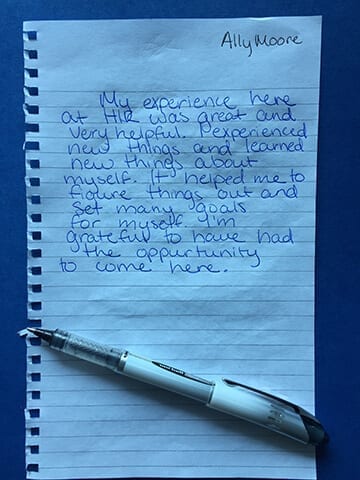 Ally Moore
My experience here
at HLR was great and
very helpful. I experienced
new things and learned
new things about
myself. It helped me to
figure things out and
set many goals
for myself. I'm
grateful to have had
the oppurtunity
to come here.